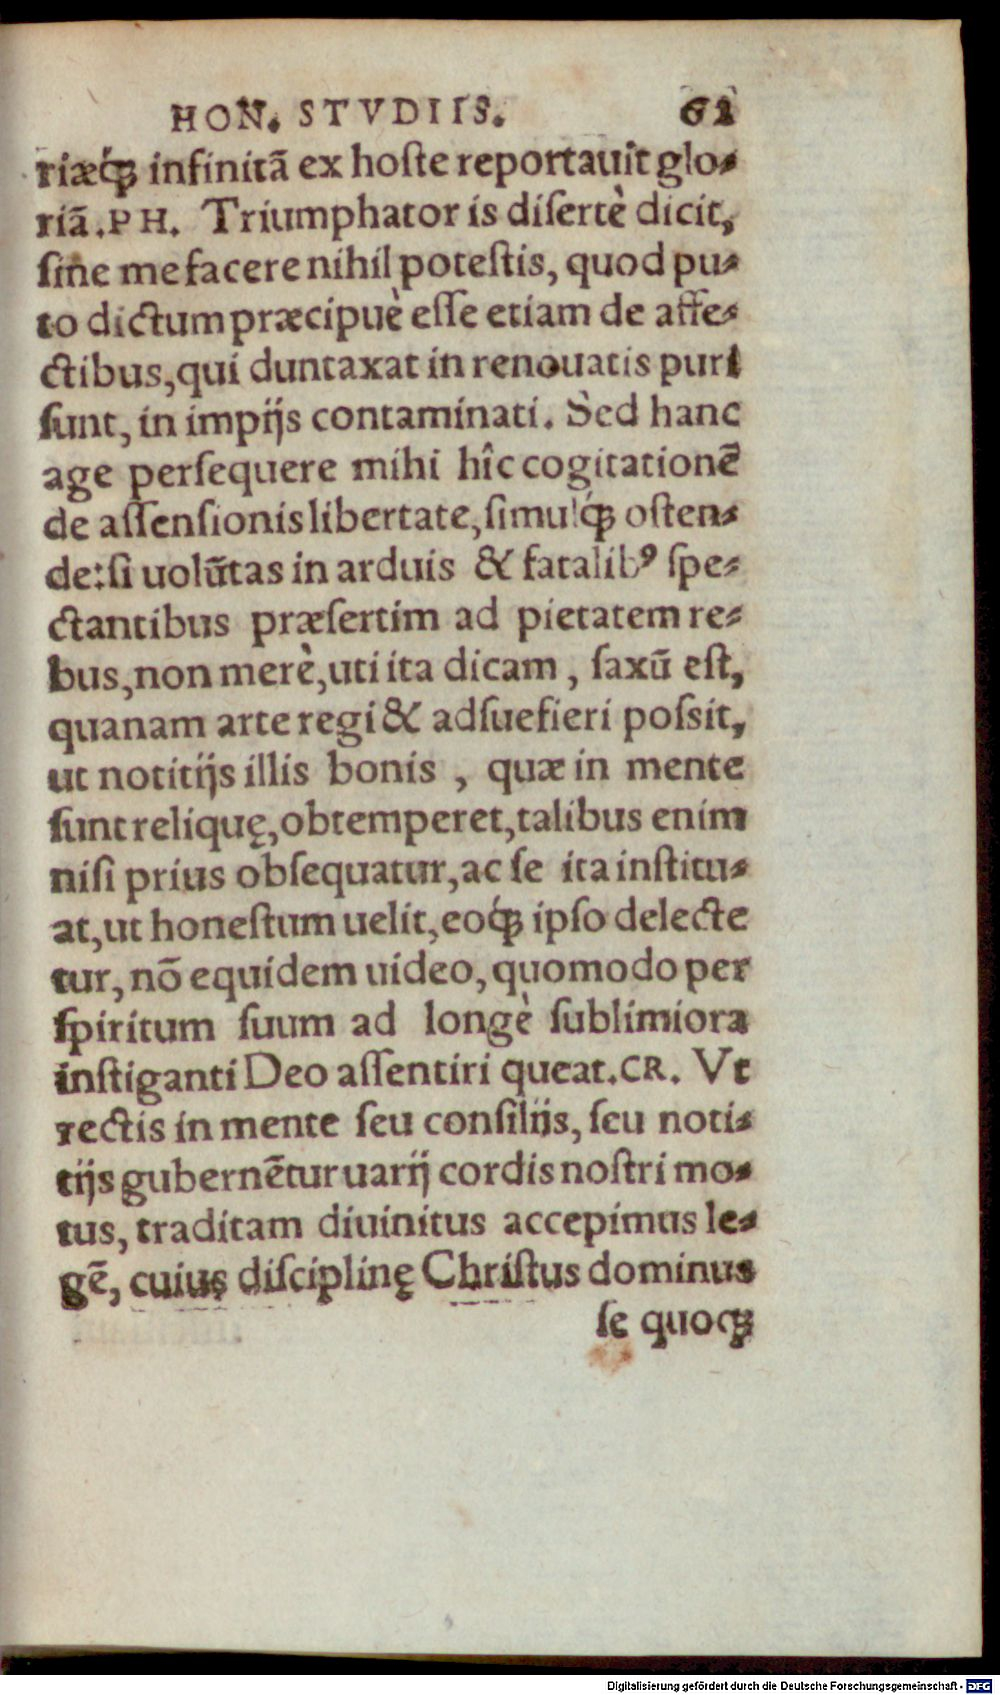 HON. STVDIIS. 61
riæq́ꝫ infinitã ex hoſte reportauit glo-
riã. PH. Triumphator is diſertè dicit,
ſine me facere nihil poteſtis, quod pu-
to dictum præcipuè eſſe etiam de affe-
ctibus, qui duntaxat in renouatis puri
ſunt, in impijs contaminati. Sed hanc
age perſequere mihi hîc cogitationẽ
de aſſenſionis libertate, ſimulq́ꝫ oſten-
de: ſi uolũtas in arduis & fatalibꝰ ſpe-
ctantibus præſertim ad pietatem re-
bus, non merè, uti ita dicam, ſaxũ eſt,
quanam arte regi & adſuefieri poſsit,
ut notitijs illis bonis, quæ in mente
ſunt reliquę, obtemperet, talibus enim
niſi prius obſequatur, ac ſe ita inſtitu-
at, ut honeſtum uelit, eoq́ꝫ ipſo delecte
tur, nõ equidem uideo, quomodo per
ſpiritum ſuum ad longè ſublimiora
inſtiganti Deo aſſentiri queat. CR. Vt
rectis in mente ſeu conſilijs, ſeu noti-
tijs gubernẽtur uarij cordis noſtri mo-
tus, traditam diuinitus accepimus le-
gẽ, cuius diſciplinę Chriſtus dominus
ſe quoqꝫ
Digitalisierung gefördert durch die Deutsche Forschungsgemeinschaft - DFG